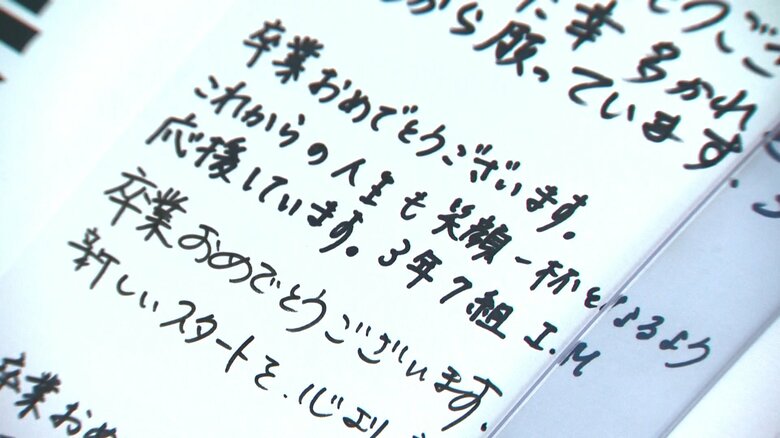 とうご
幸多かれ
から願っています。
卒業おめでとうございます。
これからの人生も笑顔一杯となるよう
応援しています。3年7組 I.M
卒業おめでとうございます。
新しいスタートを、心より
卒業おめ